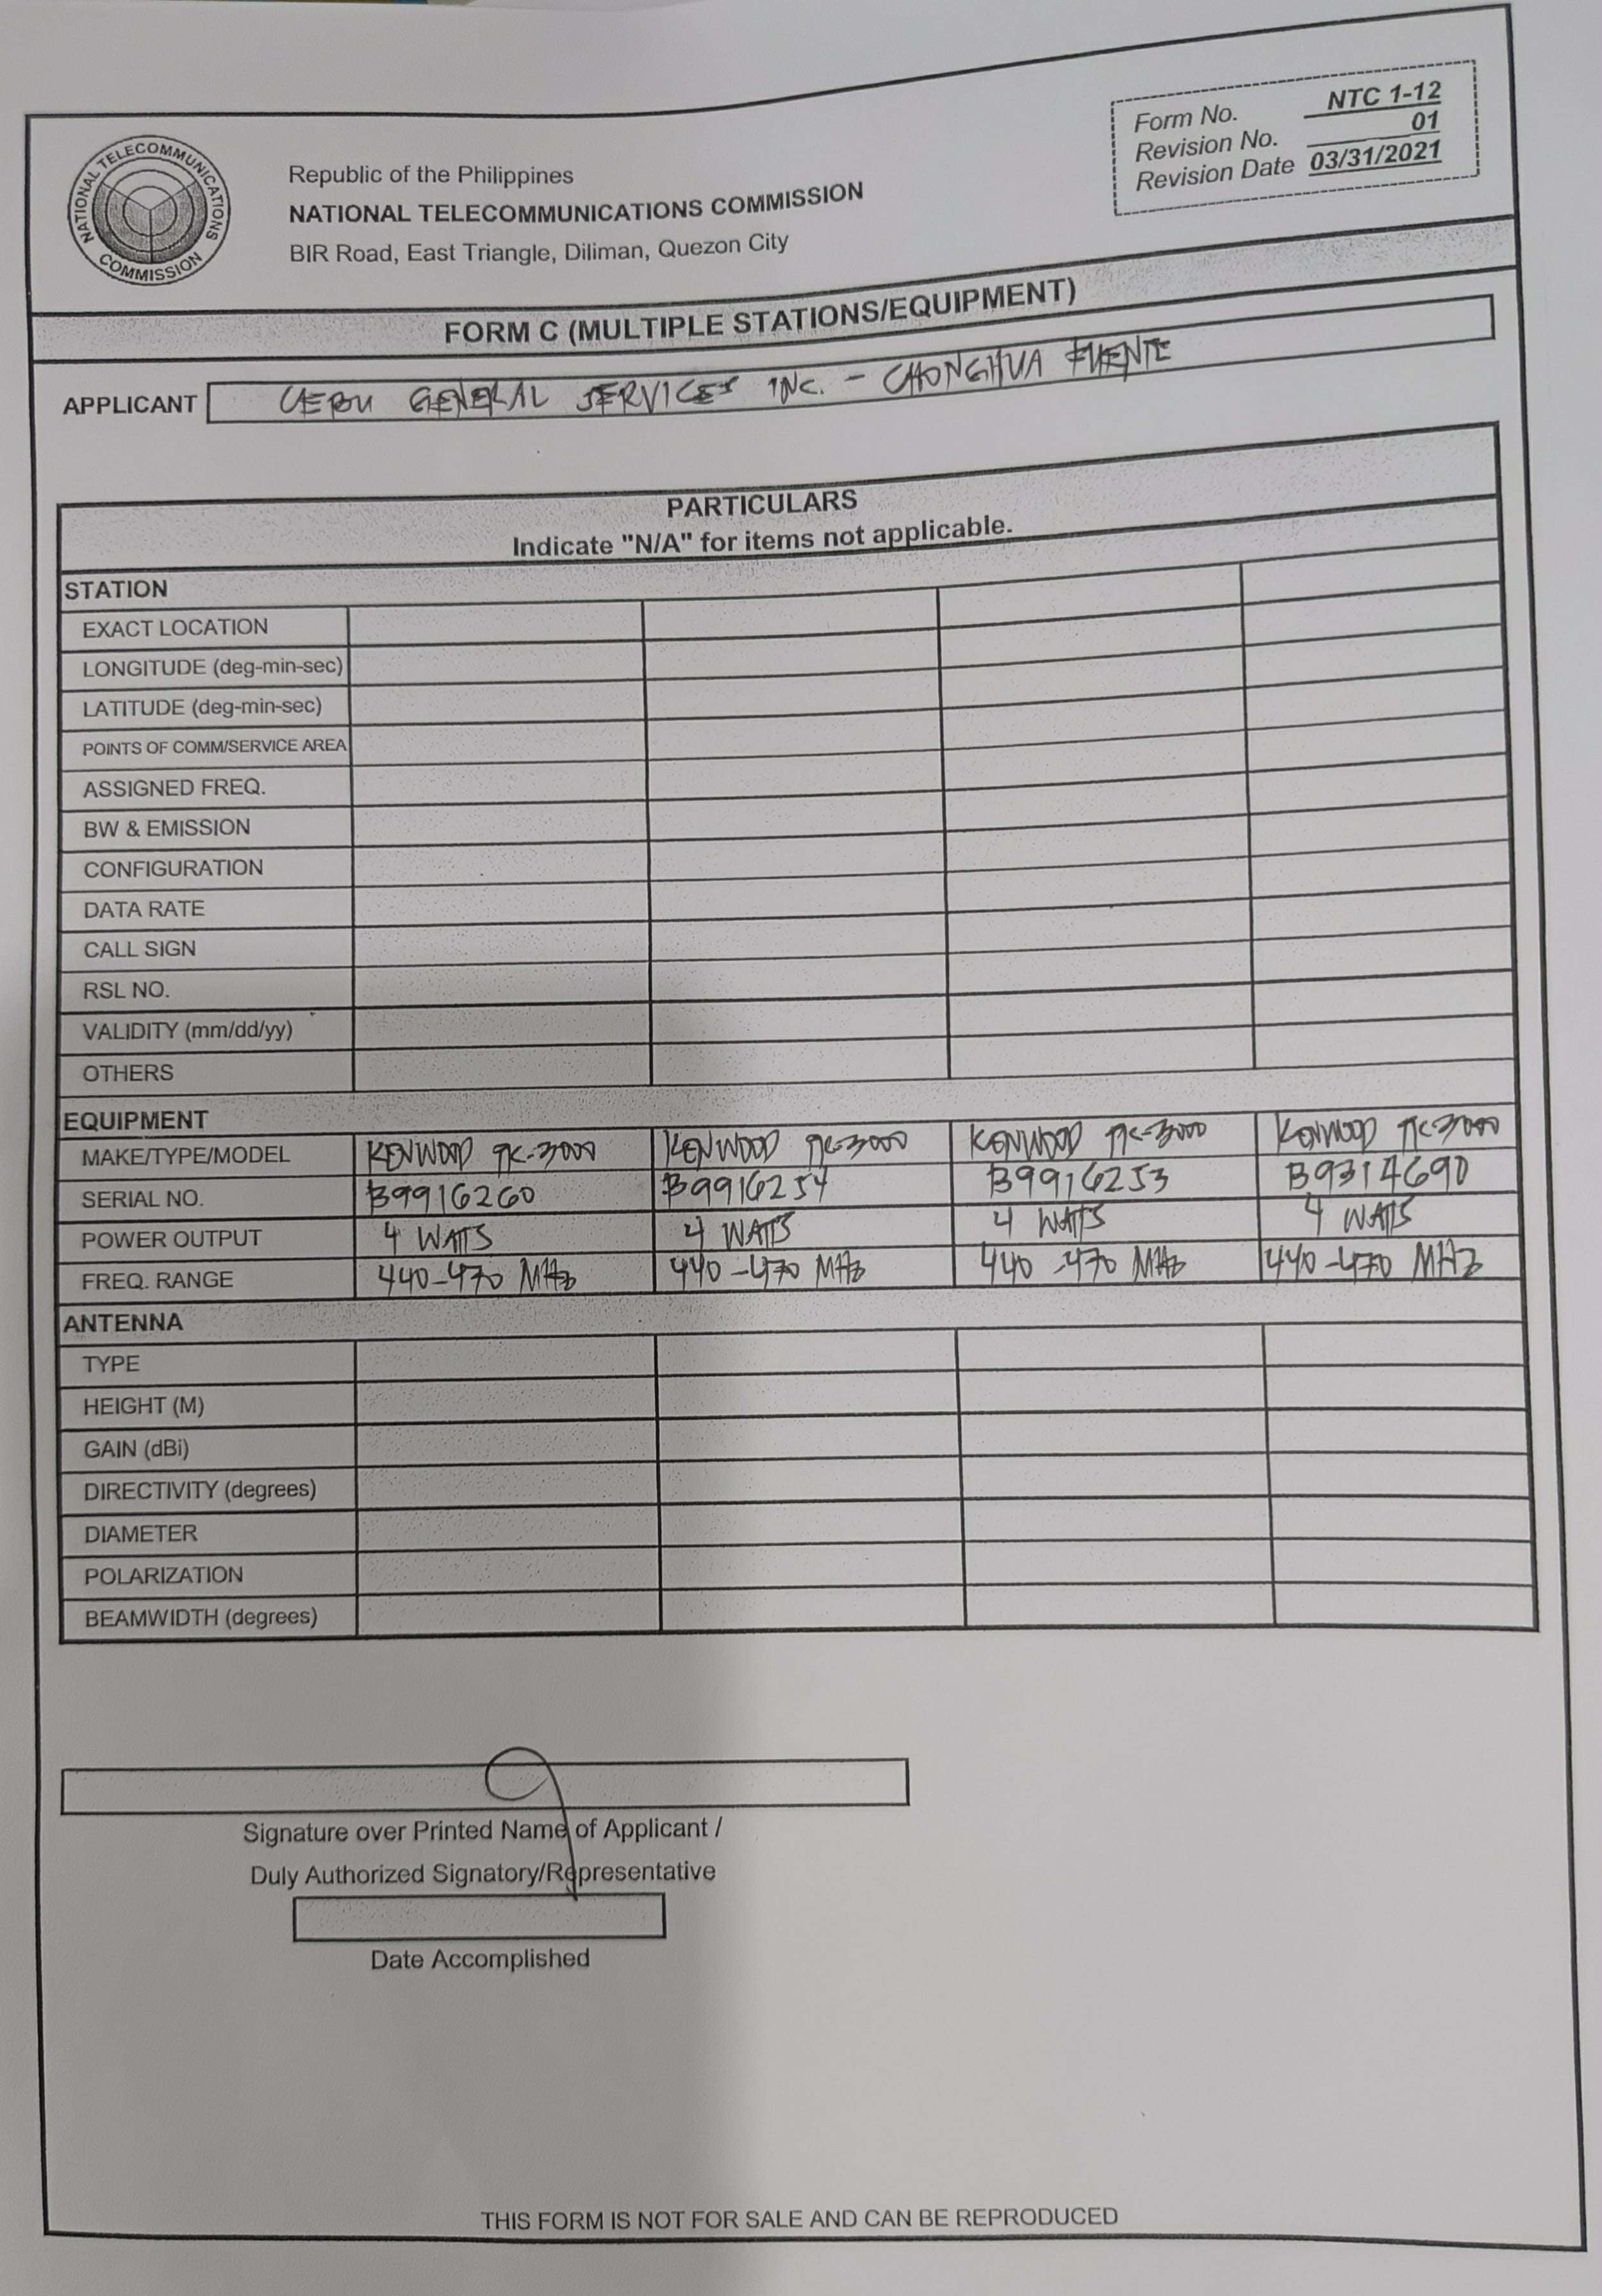 NATIONAL TELECOMMUNICATIONS COMMISSION
Republic of the Philippines
NATIONAL TELECOMMUNICATIONS COMMISSION
BIR Road, East Triangle, Diliman, Quezon City
Form No. NTC 1-12
Revision No. 01
Revision Date 03/31/2021
FORM C (MULTIPLE STATIONS/EQUIPMENT)
APPLICANT CEBU GENERAL SERVICES INC. - CHONGHUA FUENTE
PARTICULARS
Indicate "N/A" for items not applicable.
STATION
EXACT LOCATION
LONGITUDE (deg-min-sec)
LATITUDE (deg-min-sec)
POINTS OF COMM/SERVICE AREA
ASSIGNED FREQ.
BW & EMISSION
CONFIGURATION
DATA RATE
CALL SIGN
RSL NO.
VALIDITY (mm/dd/yy)
OTHERS
EQUIPMENT
MAKE/TYPE/MODEL KENWOOD TK-3000 KENWOOD TK-3000 KENWOOD TK-3000 KENWOOD TK-3000
SERIAL NO. B9916260 B9916254 B9916253 B9314690
POWER OUTPUT 4 WATTS 4 WATTS 4 WATTS 4 WATTS
FREQ. RANGE 440-470 MHz 440-470 MHz 440-470 MHz 440-470 MHz
ANTENNA
TYPE
HEIGHT (M)
GAIN (dBi)
DIRECTIVITY (degrees)
DIAMETER
POLARIZATION
BEAMWIDTH (degrees)
Signature over Printed Name of Applicant /
Duly Authorized Signatory/Representative
Date Accomplished
THIS FORM IS NOT FOR SALE AND CAN BE REPRODUCED